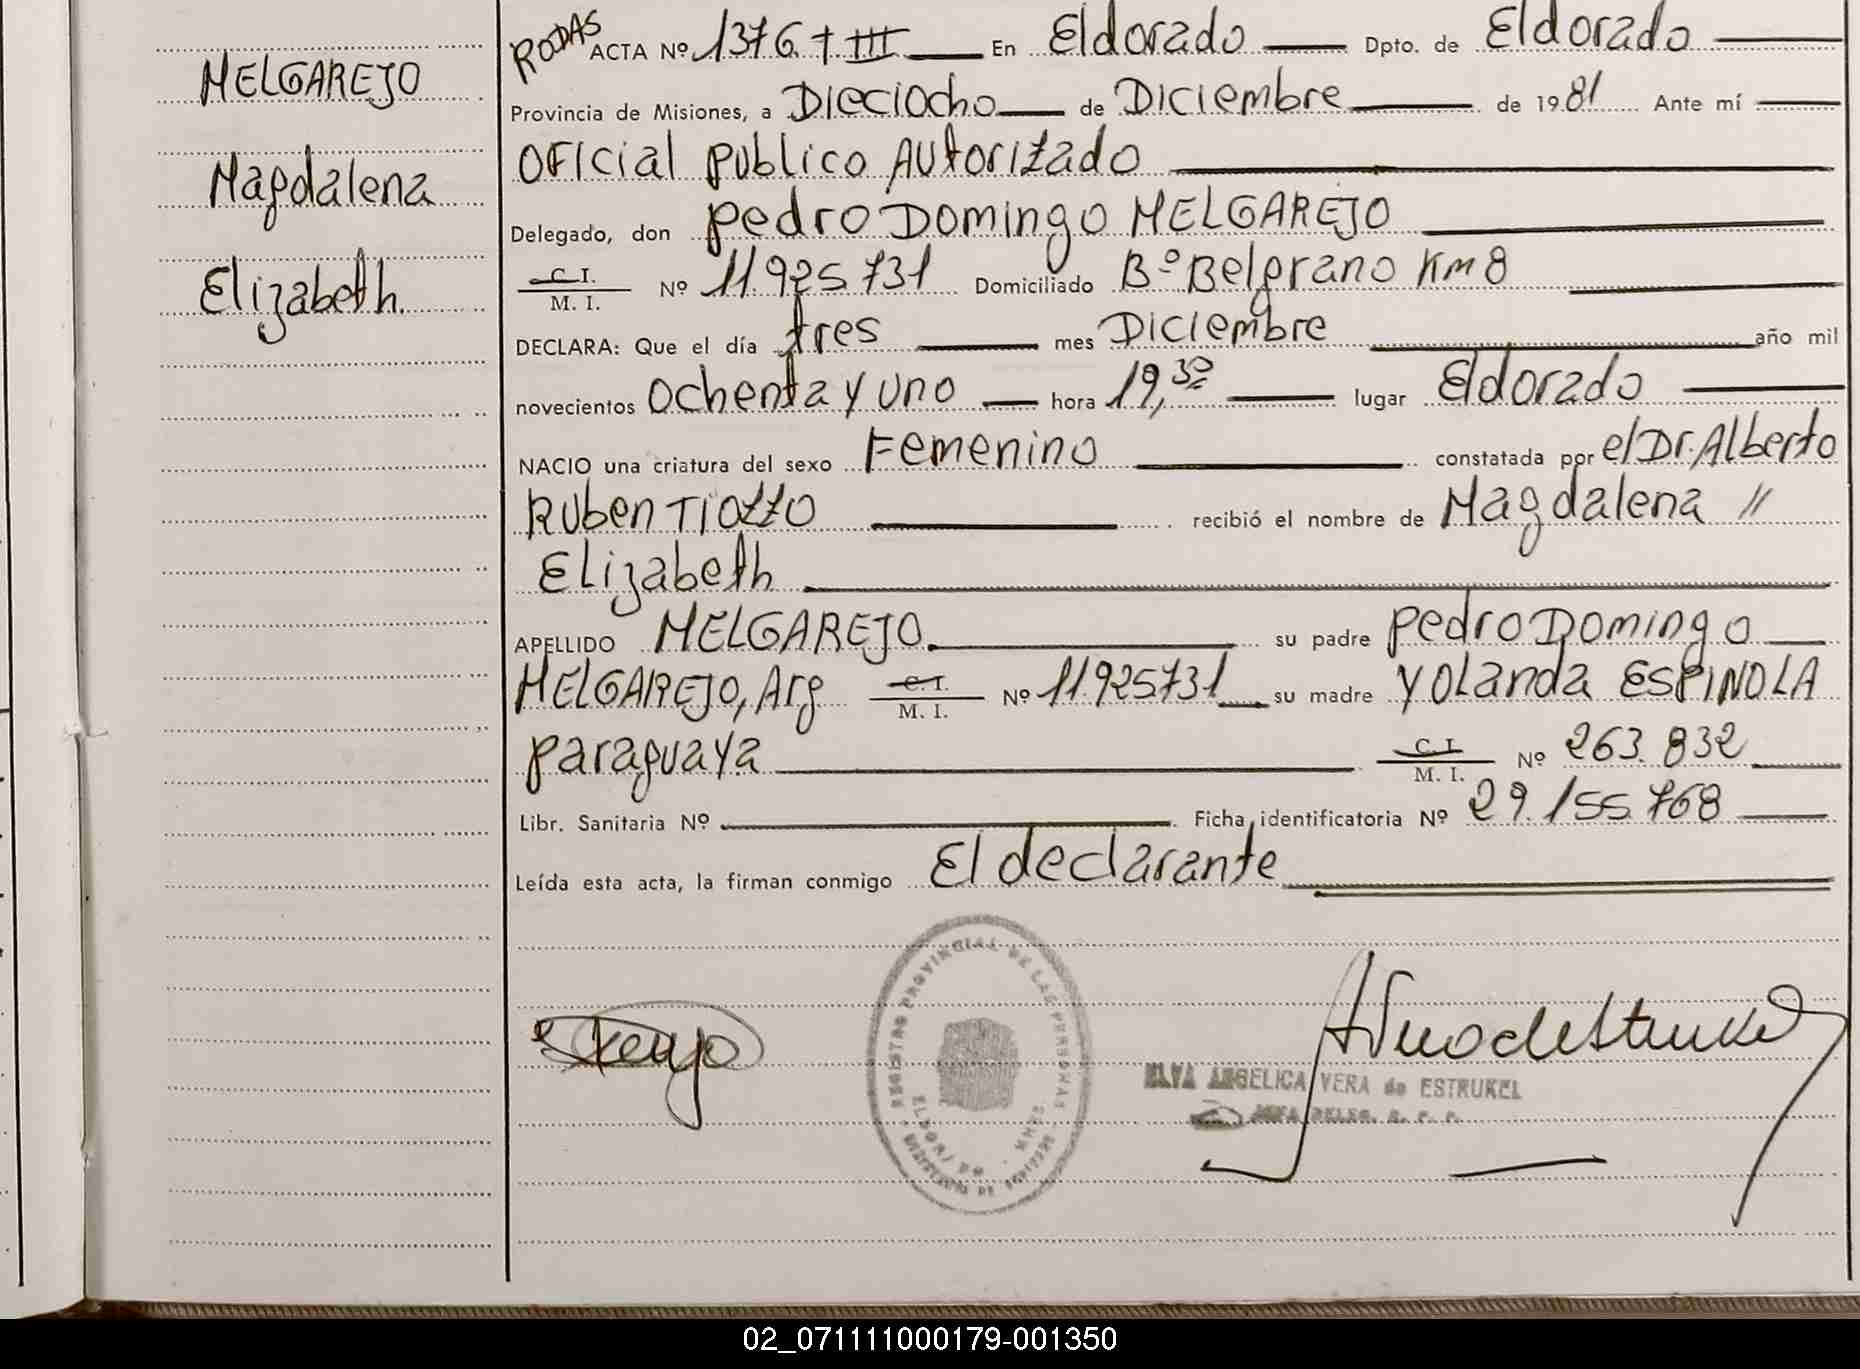 MELGAREJO
Magdalena
Elizabeth.
RODAS
ACTA Nº 1376. T III En Eldorado Dpto. de Eldorado
Provincia de Misiones, a Dieciocho de Diciembre de 1981 Ante mí
Oficial Publico Autorizado
Delegado, don Pedro Domingo MELGAREJO
C. I.
M. I. Nº 11.925.731 Domiciliado Bº Belgrano Km 8
DECLARA: Que el día tres mes Diciembre año mil
novecientos Ochenta y uno hora 19,30 lugar Eldorado
NACIO una criatura del sexo Femenino constatada por el Dr. Alberto
Ruben Tiozzo recibió el nombre de Magdalena //
Elizabeth
APELLIDO MELGAREJO. su padre Pedro Domingo
MELGAREJO, Arg C. I.
M. I. Nº 11.925.731 su madre Yolanda ESPINOLA
paraguaya C. I.
M. I. Nº 263.832
Libr. Sanitaria Nº Ficha identificatoria Nº 29.155.768
Leída esta acta, la firman conmigo El declarante
REGISTRO PROVINCIAL DE LAS PERSONAS
ELDORADO - MNES
ELVA ANGELICA VERA de ESTRUKEL
02_071111000179-001350